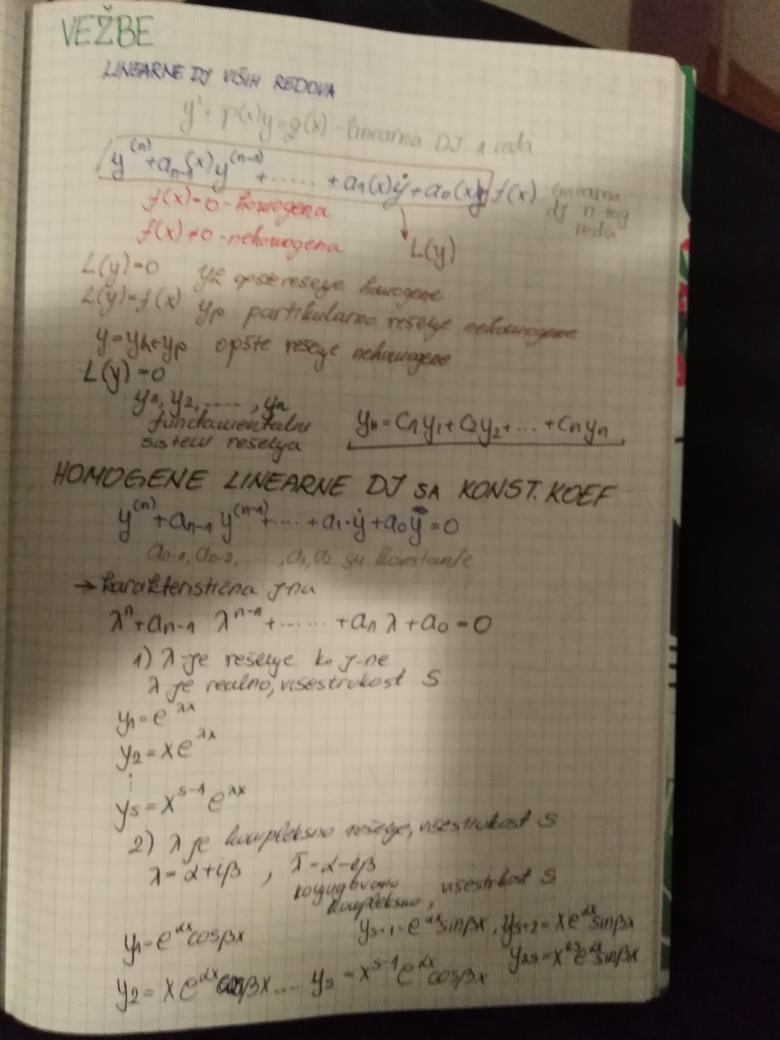 VEŽBE
LINEARNE DJ VIŠIH REDOVA
y' + p(x)y = g(x) - linearna DJ 1 reda
y⁽ⁿ⁾ + aₙ₋₁(x)y⁽ⁿ⁻¹⁾ + ..... + a₁(x)y' + a₀(x)y = f(x) linearna
dj n-tog
reda
f(x)=0 - homogena
f(x)≠0 - nehomogena
L(y)
L(y)=0 yh opšte rešenje homogene
L(y)=f(x) yp - partikularno rešenje nehomogene
y=yh+yp opšte rešenje nehomogene
L(y)=0
y₁, y₂, ....., yₙ
fundamentalni
sistem rešenja
yh = C₁y₁ + C₂y₂ + ... + Cₙyₙ
HOMOGENE LINEARNE DJ SA KONST. KOEF
y⁽ⁿ⁾ + aₙ₋₁ y⁽ⁿ⁻¹⁾ + ... + a₁·y' + a₀y = 0
aₙ₋₁, aₙ₋₂, ..., a₁, a₂ su konstante
→ karakteristična j-na
λⁿ + aₙ₋₁ λⁿ⁻¹ + ...... + a₁ λ + a₀ = 0
1) λ je rešenje k. j-ne
λ je realno, višestrukost S
y₁ = e^λx
y₂ = xe^λx
⋮
ys = x^s-1 e^λx
2) λ je kompleksno rešenje, višestrukost S
λ = α+iβ , λ̄ = α-iβ
konjugovano
kompleksno, višestrukost S
y₁ = e^αx cosβx
ys+1 = e^αx sinβx, ys+2 = xe^αx sinβx
y₂ = xe^αx cosβx .... ys = x^s-1 e^αx cosβx